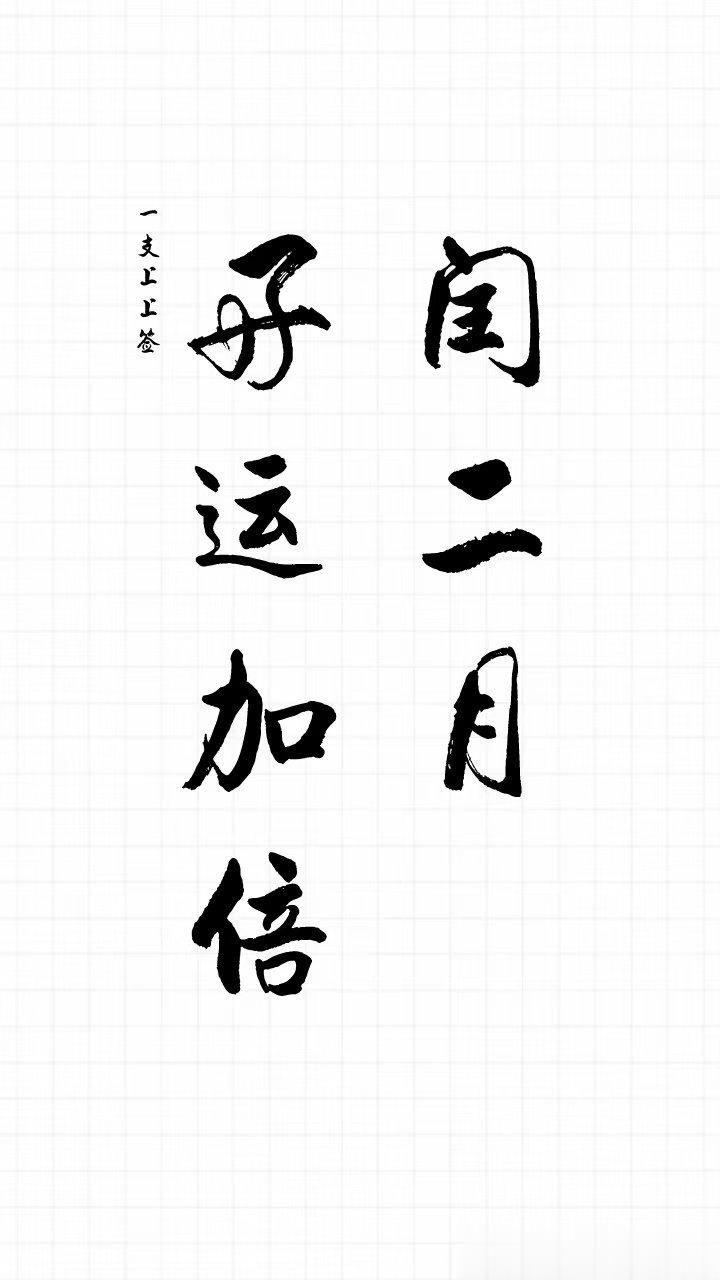 闰二月
好运加倍
一支上上签